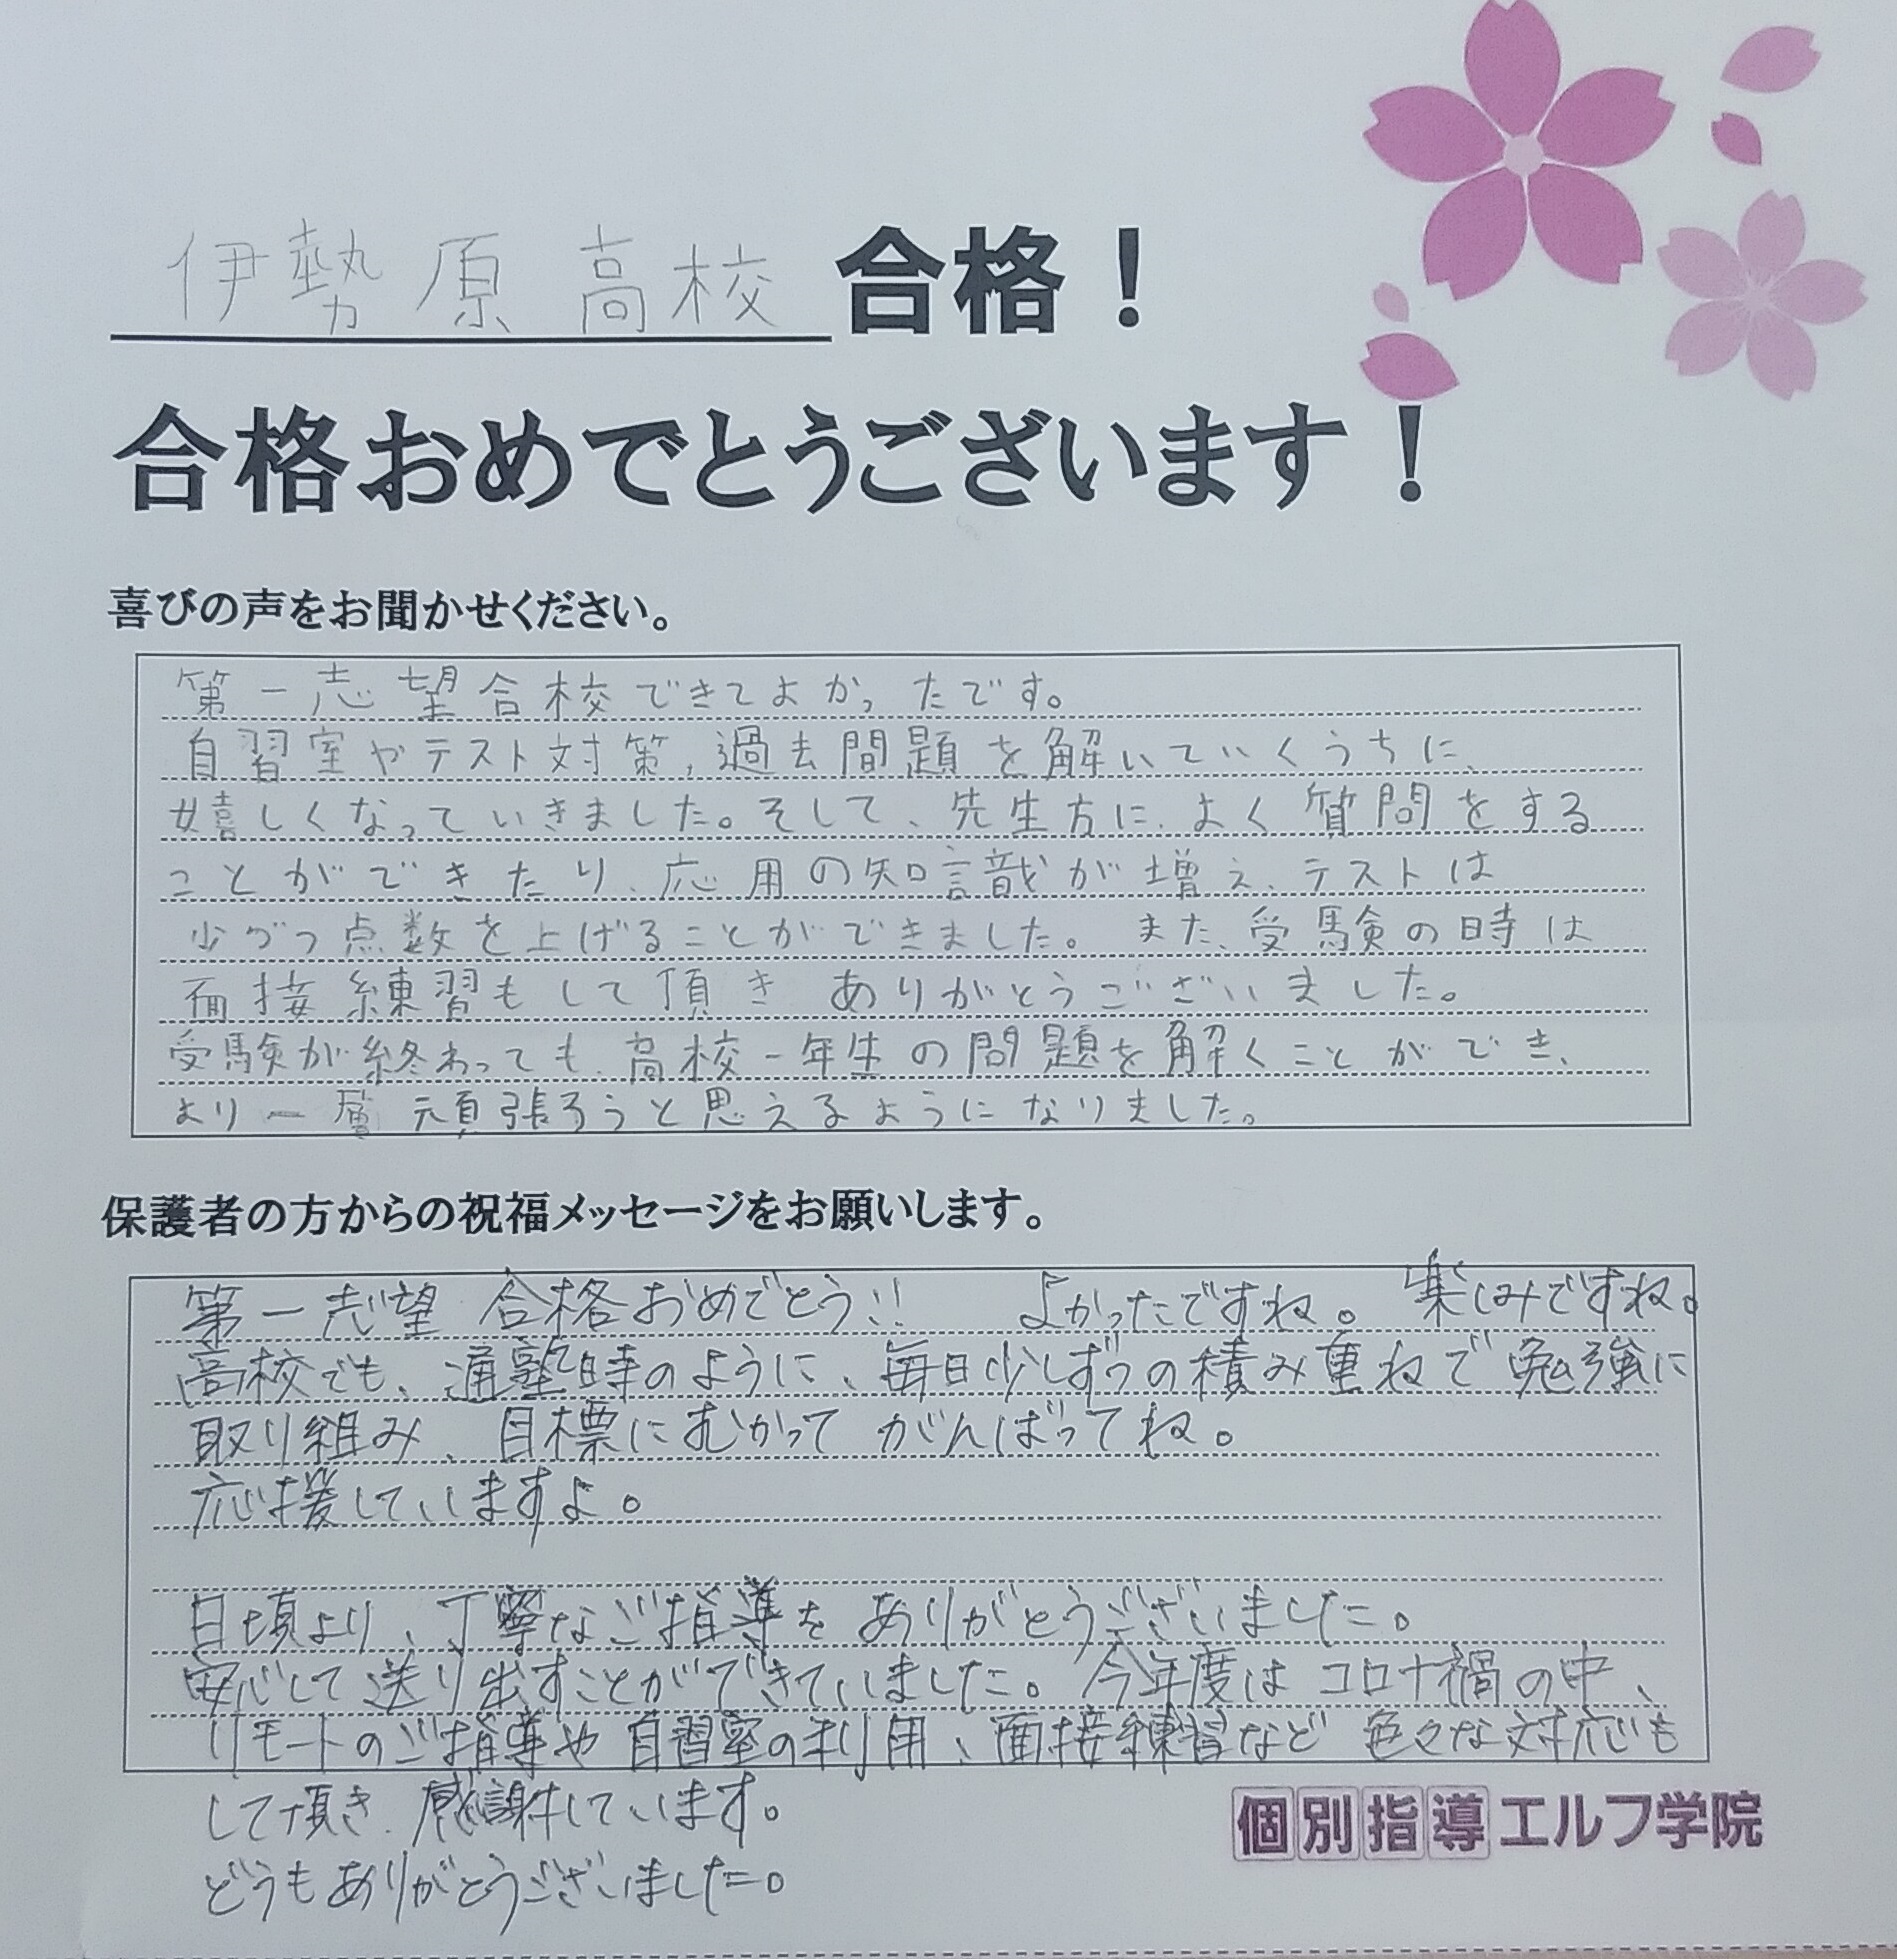 伊勢原高校合格！
合格おめでとうございます！
喜びの声をお聞かせください。
第一志望合校できてよかったです。
自習室やテスト対策,過去間題を解いていくうちに、
嬉しくなっていきました。そして、先生方に、よく質問をする
ことができたり、応用の知識が増え、テストは
少づつ点数を上げることができました。また、受験の時は
面接練習もして頂きありがとうございました。
受験が終わっても、高校一年生の問題を解くことができ、
より一層頑張ろうと思えるようになりました。
保護者の方からの祝福メッセージをお願いします。
第一志望合格おめでとう!! よかったですね。楽しみですね。
高校でも、通塾時のように、毎日少しずつの積み重ねで勉強に
取り組み、目標にむかってがんばってね。
応援していますよ。
日頃より、丁寧なご指導をありがとうございました。
安心して送り出すことができていました。今年度はコロナ禍の中、
リモートのご指導や自習室の利用、面接練習など色々な対応も
して頂き、感謝しています。
どうもありがとうございました。
個別指導エルフ学院